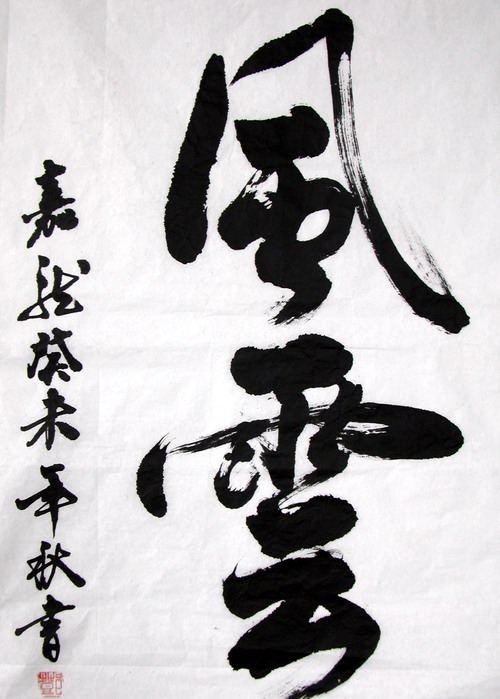 風雲
嘉龙癸未年秋書